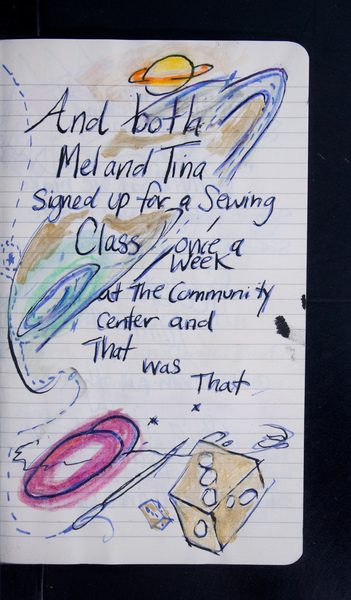 And both
Mel and Tina
signed up for a Sewing
Class once a
week
at The Community
center and
That
was
That